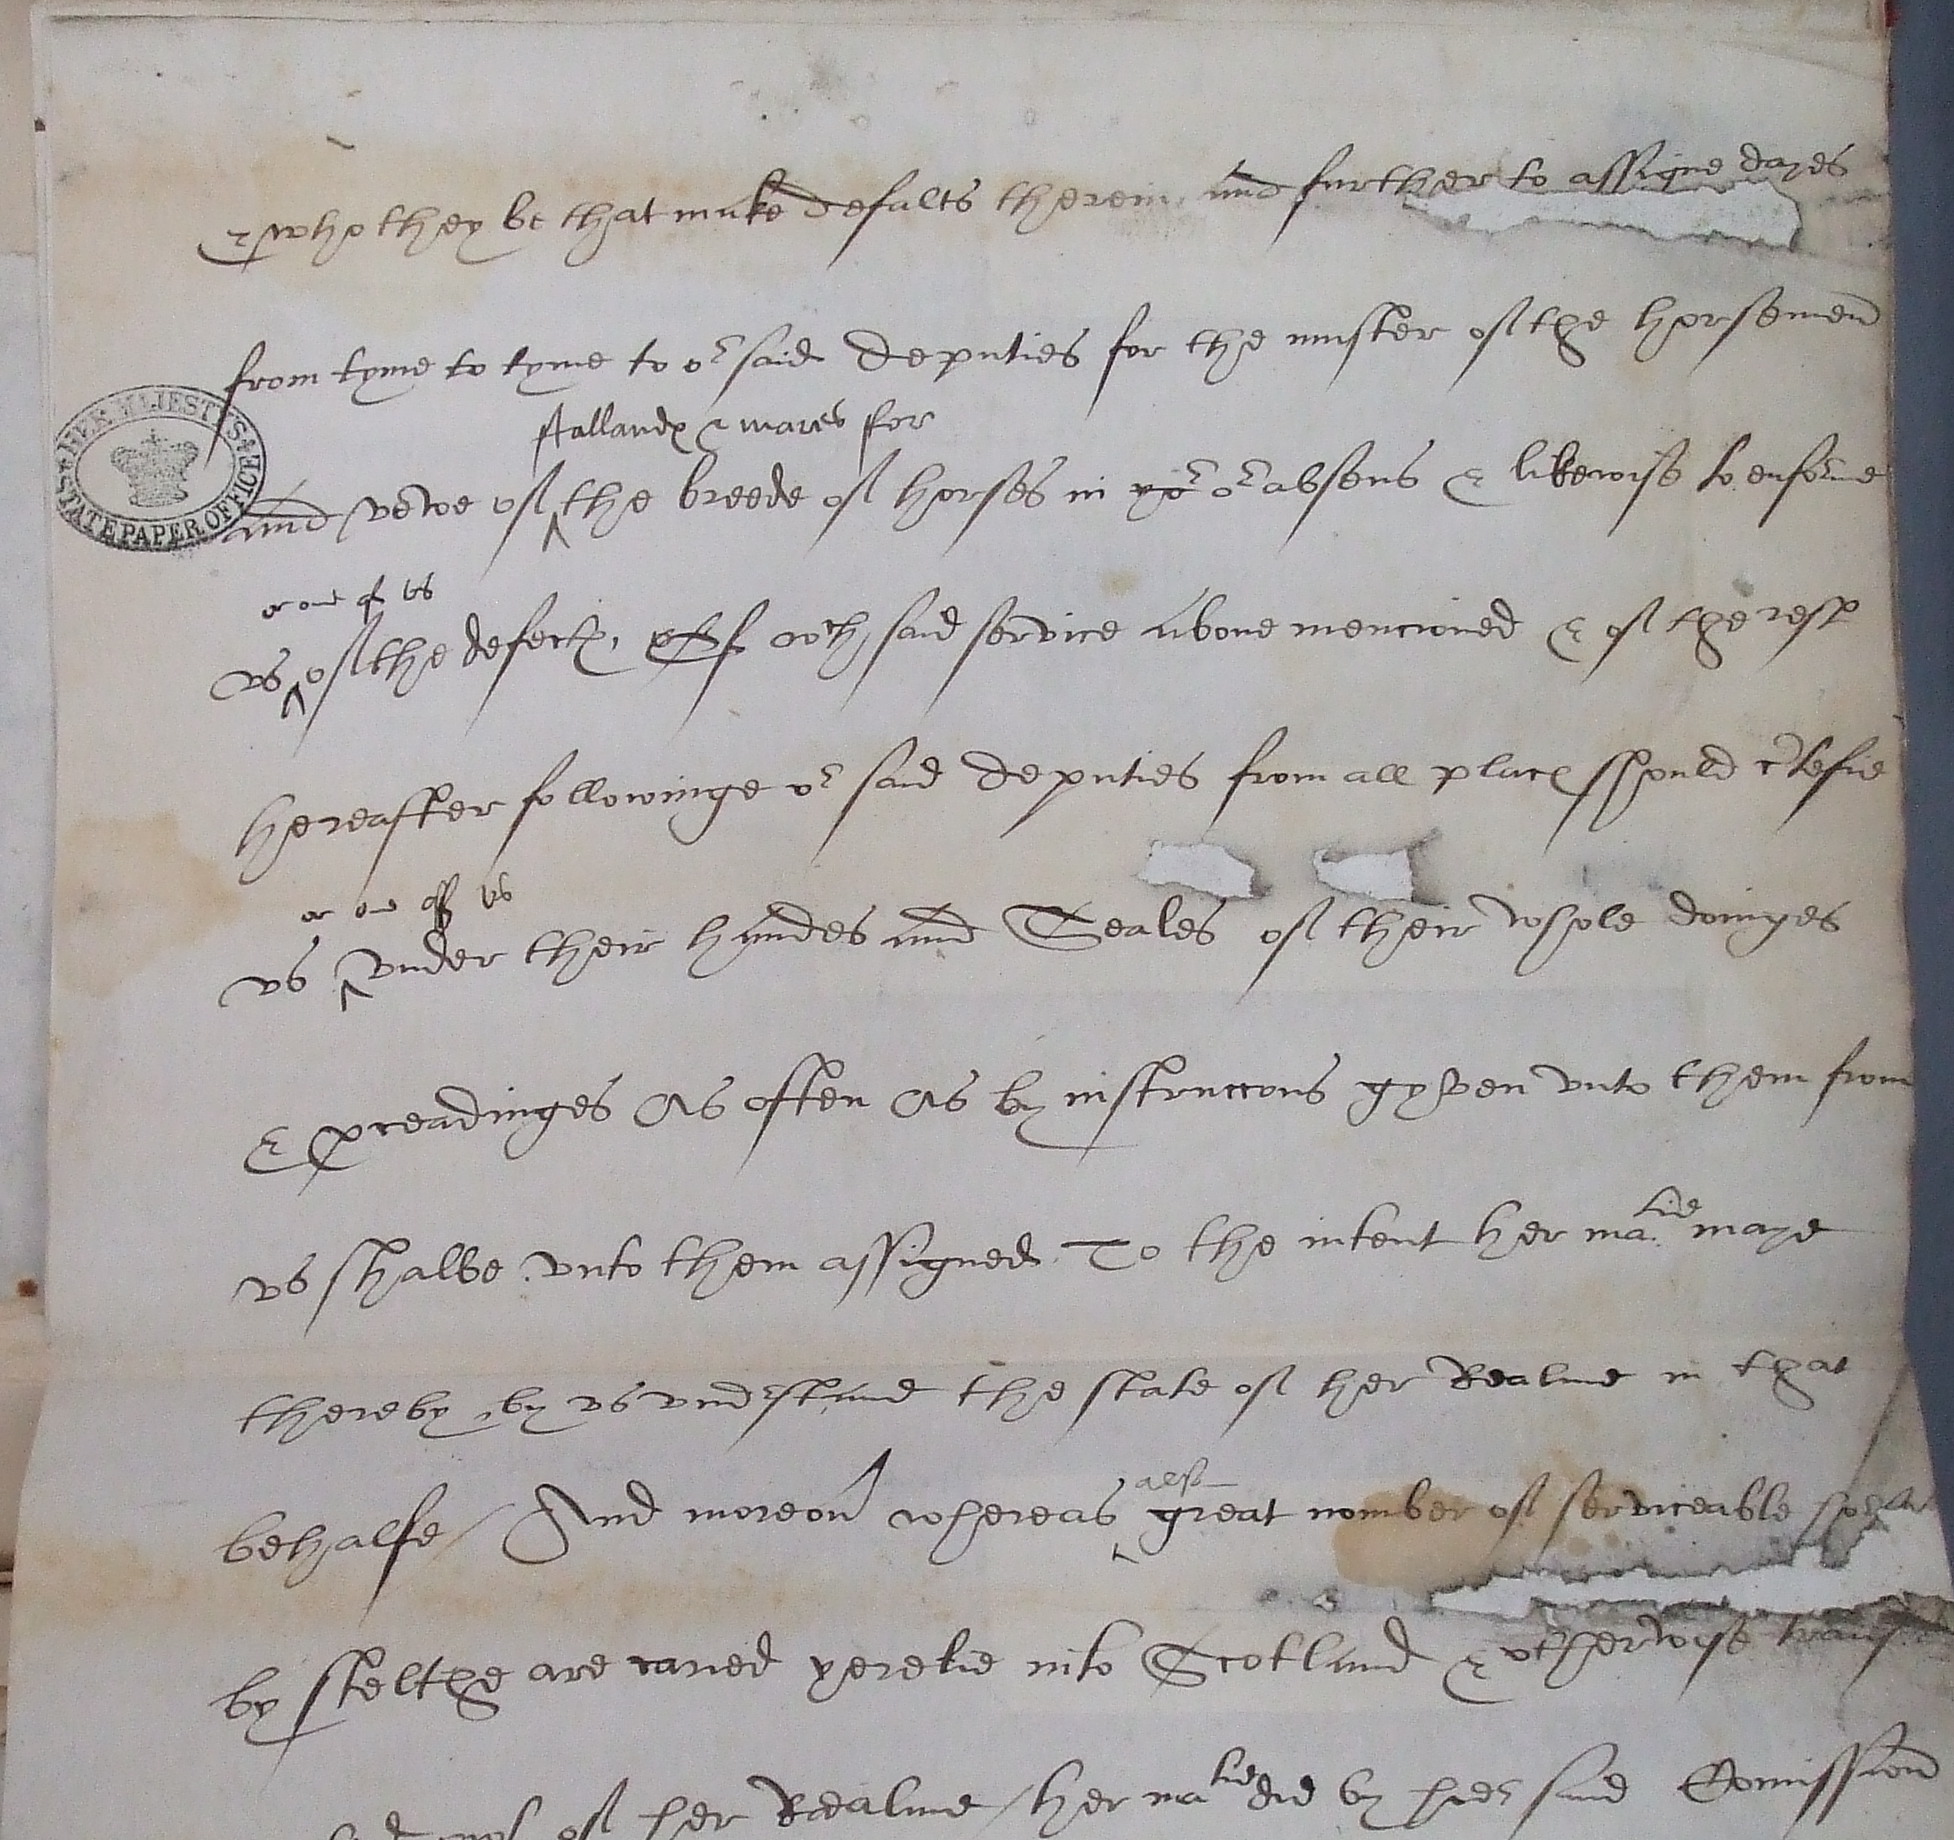 & who they be that make defalts therein and further to assigne dayes
from tyme to tyme to or said deputies for the muster of the horsemen
stallandes & mares for
HER MAJESTY'S STATE PAPER OFFICE
and vewe of ^ the breede of horses in yor or absens & likewise to enforme
or one of vs
vs ^ of the defectes, wch said service above mencioned & of the rest
hereafter followinge or said deputies from all places should certefie
or one off vs
vs ^ vnder their handes and Seales of their whole doinges
& proceadinges As often As by instruccons gyven vnto them from
vs shalbe vnto them assigned. To the intent her matie maye
thereby by vs vnderstand the state of her Realme in that
also
behalfe / And moreour whereas ^ great nomber of serviceable
by stelthe are caried yerelie into Scotland & otherwise
of her Realme / her matie did by her said Comission